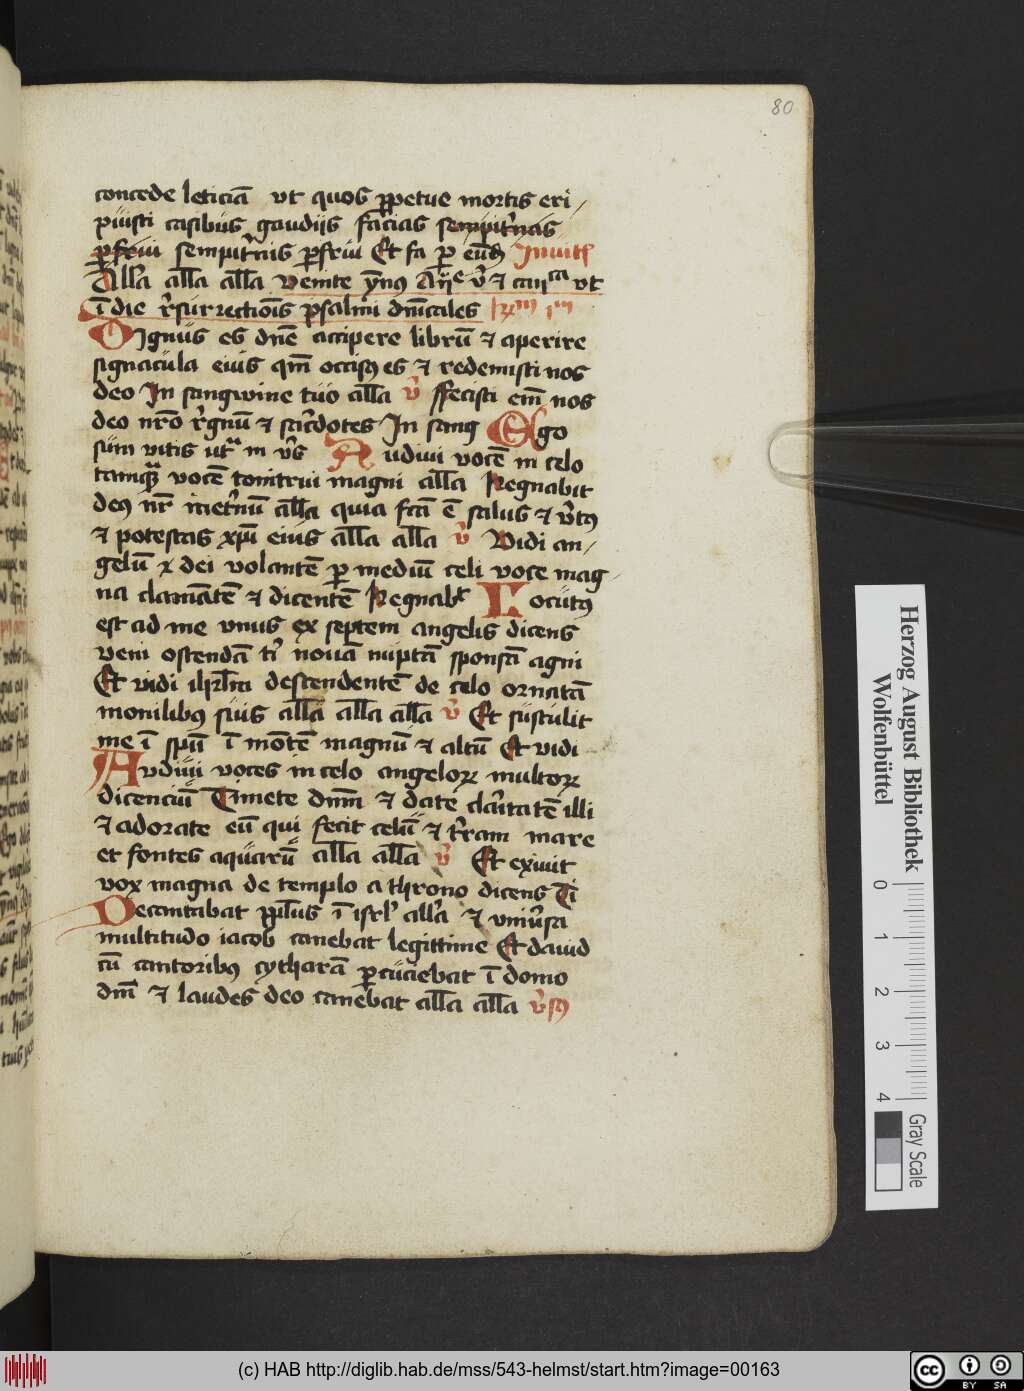 80
concede leticiā vt quos ꝑpetue mortis eri/
puisti casibus gaudijs facias sempit̄nas
ꝑfrui sempit̄nis ꝑfrui Et fa ꝑ eūd Inuitͭ
All'a all̄a all̄a venite ẏnus v̄ ⁊ ca vt
ī die r̄surrectiōis psalmi dn̄icales
Dignus es dn̄e accipere librū ⁊ aperire
signacula eius qm̄ occisꝰ es ⁊ redemisti nos
deo In sangwine tuo all̄a v̄ ffecisti em̄ nos
deo nr̄o r̄gnū ⁊ sac̄dotes In sang Ego
sum vitis ut̄ª in v̄s Audiui vocē in celo
tamqª vocē tonitrui magni all̄a Regnabit
deꝰ nr̄ in et̄nū all̄a quia fc̄ā ē salus ⁊ v̄tꝰ
⁊ potestas xp̄i eius all̄a all̄a v̄ Vidi an/
gelū dei volantē ꝑ mediū celi voce mag
na clamātē ⁊ dicentē Regnabͭ Locutꝰ
est ad me vnus ex septem angelis dicens
veni ostendā ti nouā nuptā sponsā agni
Et vidi ihrl̄m descendentē de celo ornatā
monilibꝰ suis all̄a all̄a all̄a v̄ Et sustulit
me ī spū ī mōtē magnū ⁊ altū Et vidi
Avdiui voces in celo angeloꝝ multoꝝ
dicenciū Timete dn̄m ⁊ date cla̅itatē illi
⁊ adorate eū qui fecit celū ⁊ t̄ram mare
et fontes aquarū all̄a all̄a v̄ Et exiuit
vox magna de templo a throno dicens Ti
Decantabat ppl̄us ī isrl' all'a ⁊ vniu̅sa
multitudo iacob canebat legittime Et dauid
cū cantoribꝰ cytharā ꝑcuciebat ī domo
dn̄i ⁊ laudes deo canebat all̄a all̄a v̄sꝰ
Herzog August Bibliothek
Wolfenbüttel
0 1 2 3 4
Gray Scale
(c) HAB http://diglib.hab.de/mss/543-helmst/start.htm?image=00163
cc BY SA